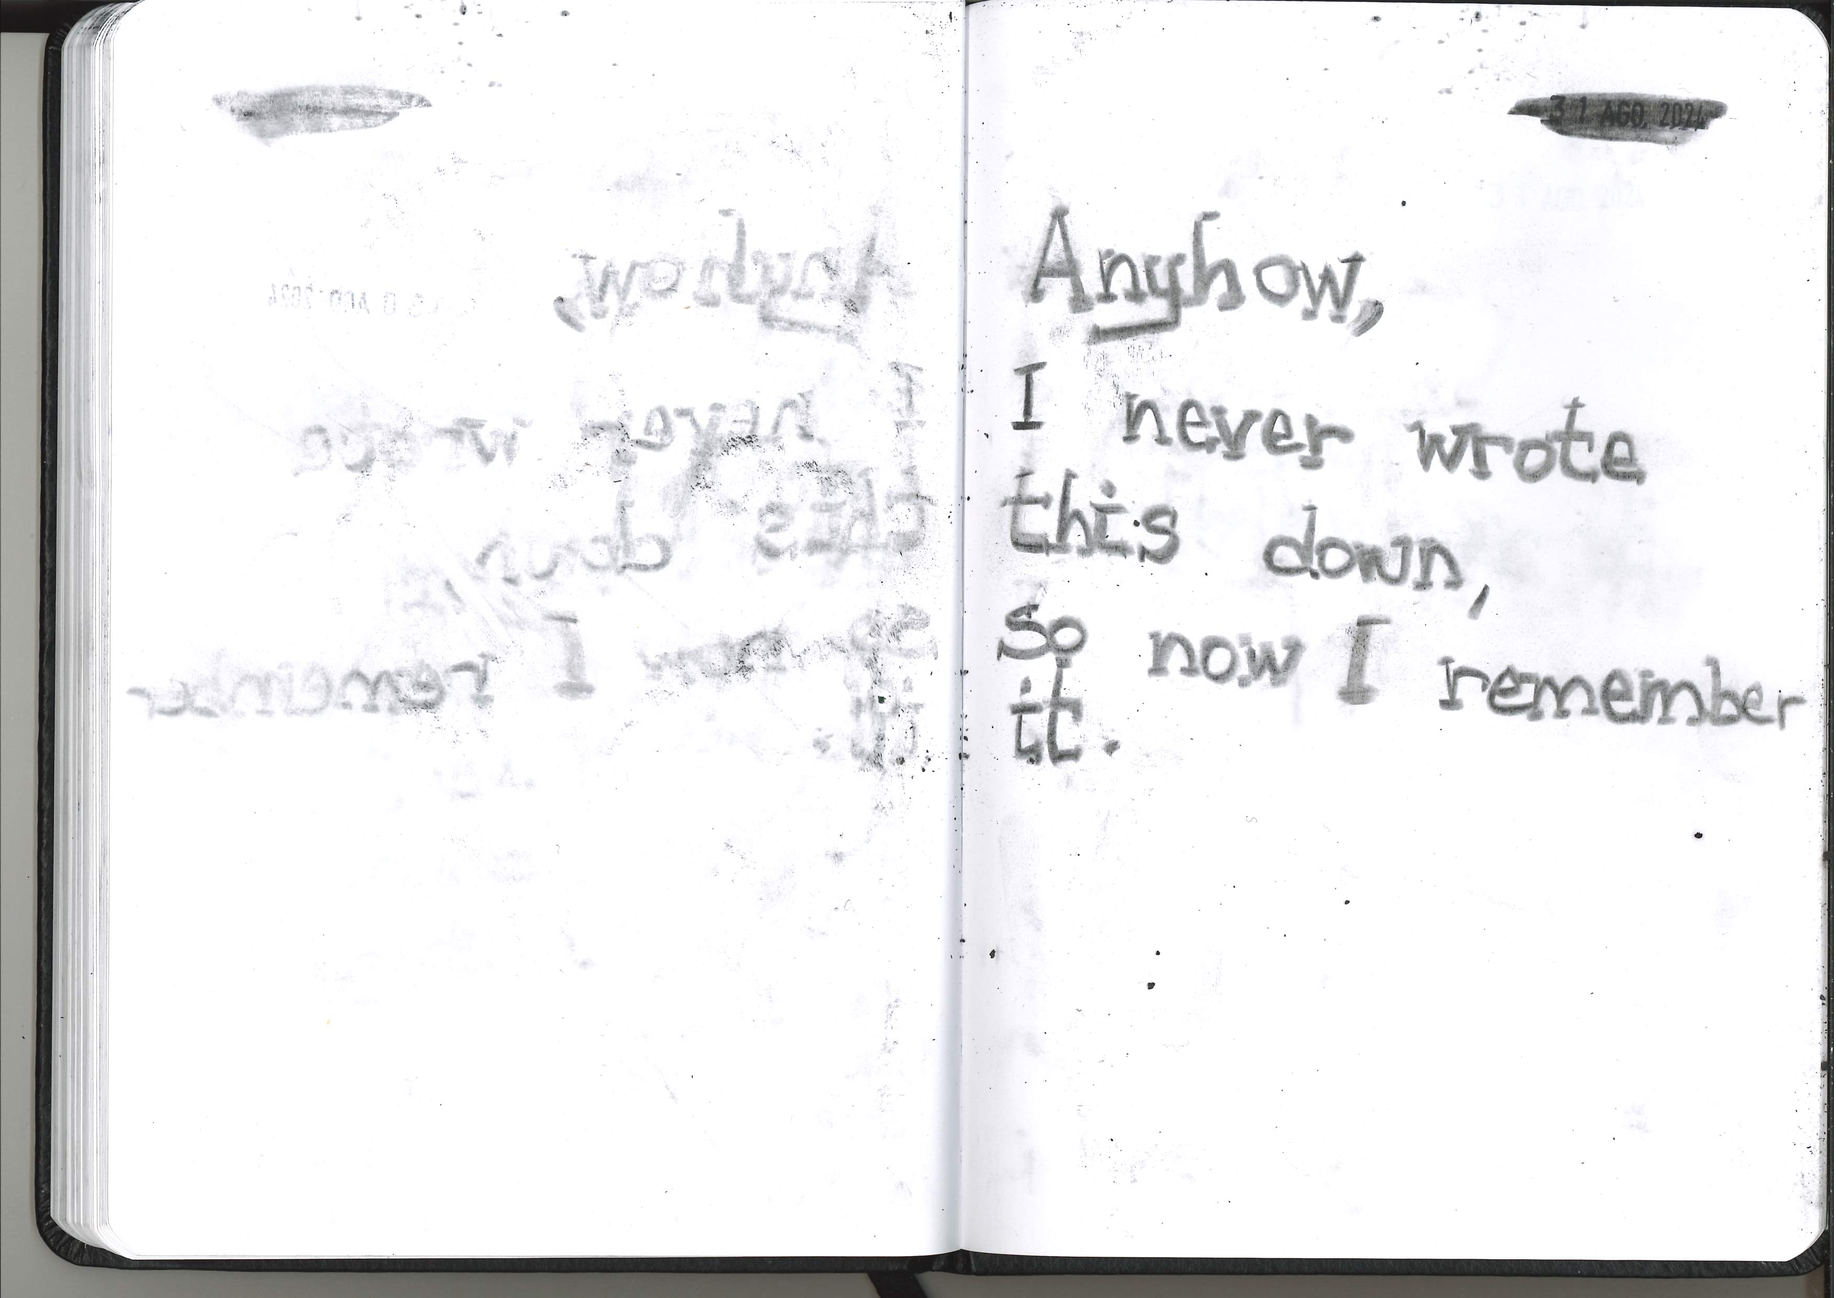 31 AGO. 2024
Anyhow,
I never wrote
this down,
So now I remember
it.